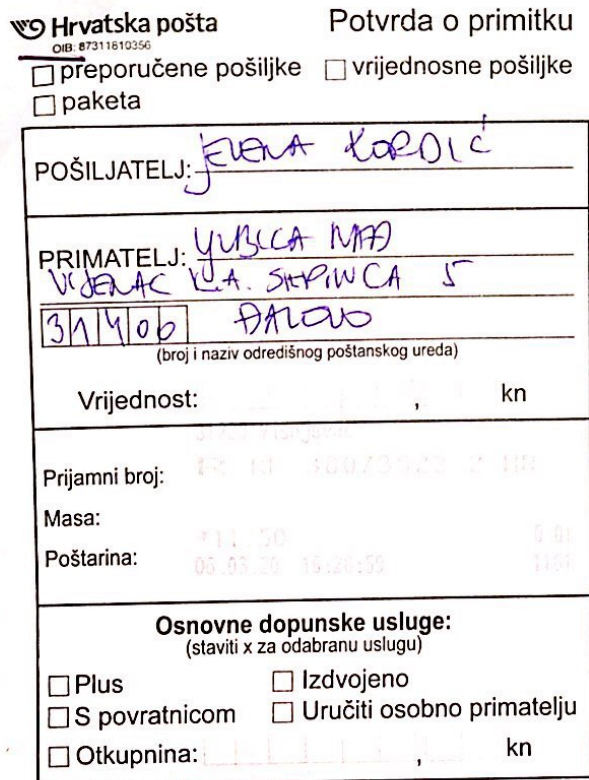 Hrvatska pošta
Potvrda o primitku
OIB: 87311810356
preporučene pošiljke
vrijednosne pošiljke
paketa
POŠILJATELJ: JELENA KORDIĆ
PRIMATELJ: LJUBICA
VIJENAC K.A. STEPINCA 5
31400 ĐAKOVO
(broj i naziv odredišnog poštanskog ureda)
Vrijednost: , kn
Prijamni broj:
Masa:
*11,50
Poštarina: 06.03.20
Osnovne dopunske usluge:
(staviti x za odabranu uslugu)
Plus
Izdvojeno
S povratnicom
Uručiti osobno primatelju
Otkupnina: , kn